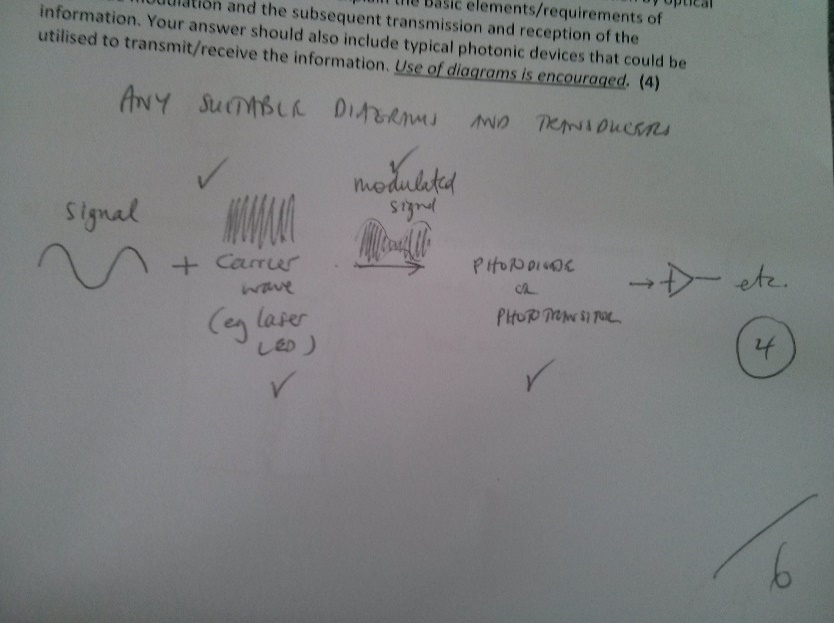 the basic elements/requirements of
information. Your answer should also include typical photonic devices that could be
utilised to transmit/receive the information. Use of diagrams is encouraged. (4)
ANY SUITABLE DIAGRAMS AND TRANSDUCERS
modulated
signal
signal
+ carrier
wave
(eg laser
LED)
PHOTODIODE
OR
PHOTOTRANSISTOR
→ etc.
4
/6